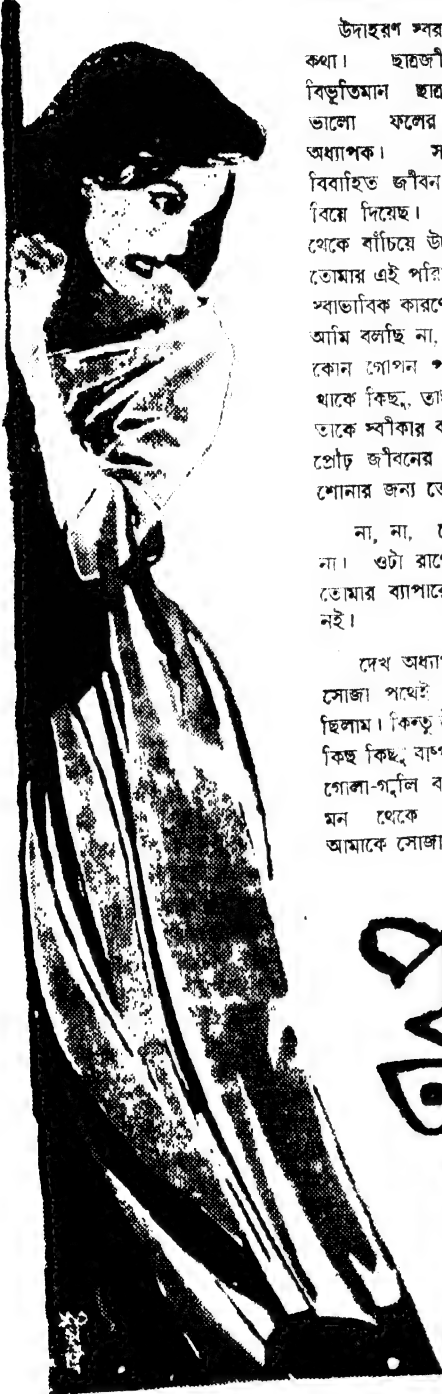 উদাহরণ স্বর
কথা। ছাত্রজী
বিভূতিমান ছাত্র
ভালো ফলের
অধ্যাপক। স
বিবাহিত জীবন
বিয়ে দিয়েছ।
থেকে বাঁচিয়ে উ
তোমার এই পরি
স্বাভাবিক কারণে
আমি বলছি না,
কোন গোপন প
থাকে কিছু, তা
তাকে স্বীকার ব
প্রৌঢ় জীবনের
শোনার জন্য তে
না, না,
না। ওটা রাগে
তোমার ব্যাপারে
নই।
দেখ অধ্যাপ
সোজা পথেই
ছিলাম। কিন্তু
কিছু কিছু বাষ্প
গোলা-গুলি ব
মন থেকে
আমাকে সোজা